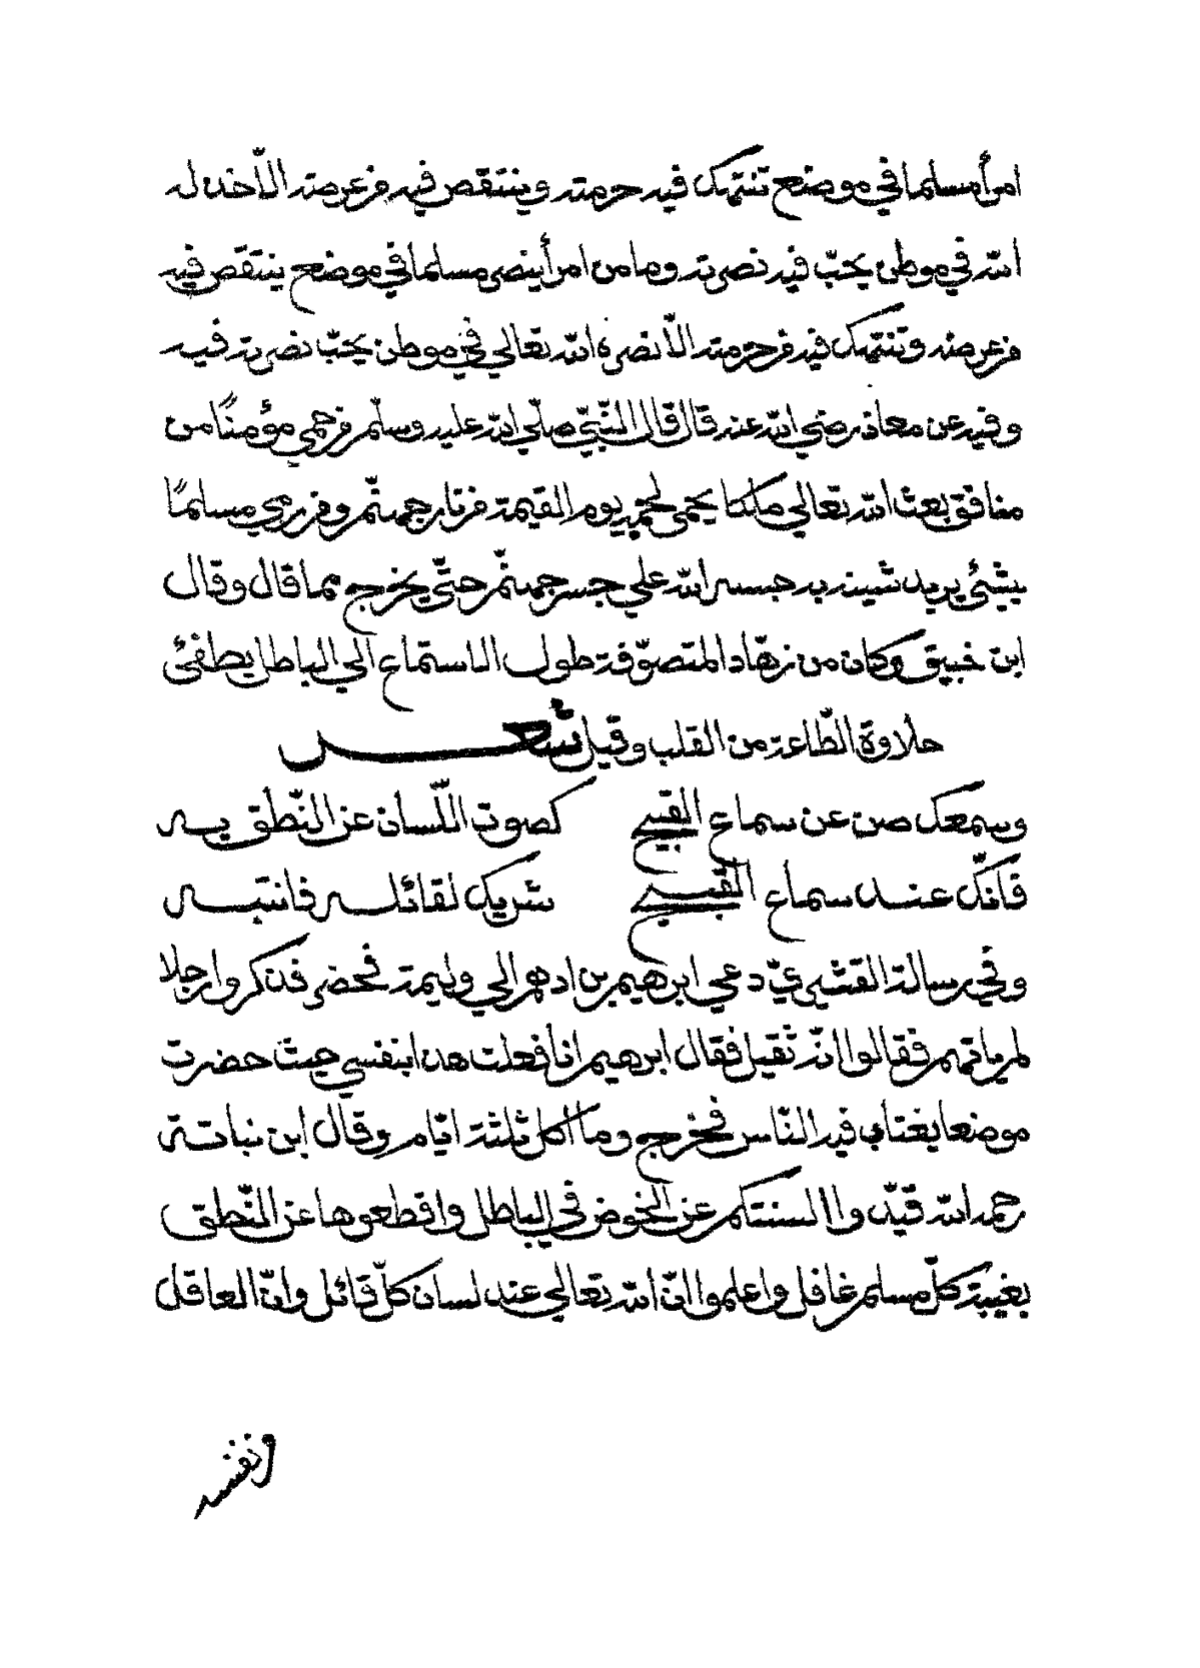 امرأ مسلما في موضع تنتهك فيه حرمته وينتقص فيه من عرضته الّا خذله
الله في موطن يحبّ فيه نصرته وما من امرأ ينصر مسلما في موضع ينتقص فيه
من عرضه وتنتهك فيه من حرمته الّا نصره الله تعالي في موطن يحبّ نصرته فيه
وفيه عن معاذ رضي الله عنه قال قال النّبيّ صلّي الله عليه وسلّم من حمي مؤمنًا من
منافق بعث الله تعالي ملكا يحمي لحمه يوم القيمة من نار جهنّم ومن رمي مسلمًا
بشيئ يريد شينه به حبسه الله علي جسر جهنّم حتّي يخرج مما قال وقال
ابن خبيق وكان من زهّاد المتصوّفة طول الاستماع الي الباطل يطفئ
حلاوة الطّاعة من القلب وقيل شعر
وسمعك صن عن سماع القبيح كصون اللّسان عن النّطق به
فانّك عند سماع القبيح شريك لقائله فانتبه
وفي رسالة القشيريّ دعي ابرهيم بن ادهم الي وليمة فحضر فذكروا رجلا
لم ياتهم فقالوا انّه ثقيل فقال ابرهيم انا فعلت هذا بنفسي حيث حضرت
موضعا يغتاب فيه النّاس فخرج وما اكل ثلثة ايّام وقال ابن نباتة
رحمه الله قيّدوا السنتكم عن الخوض في الباطل واقطعوها عن النّطق
بغيبة كلّ مسلم غافل واعلموا انّ الله تعالي عند لسان كلّ قائل وانّ العاقل
ونفسه